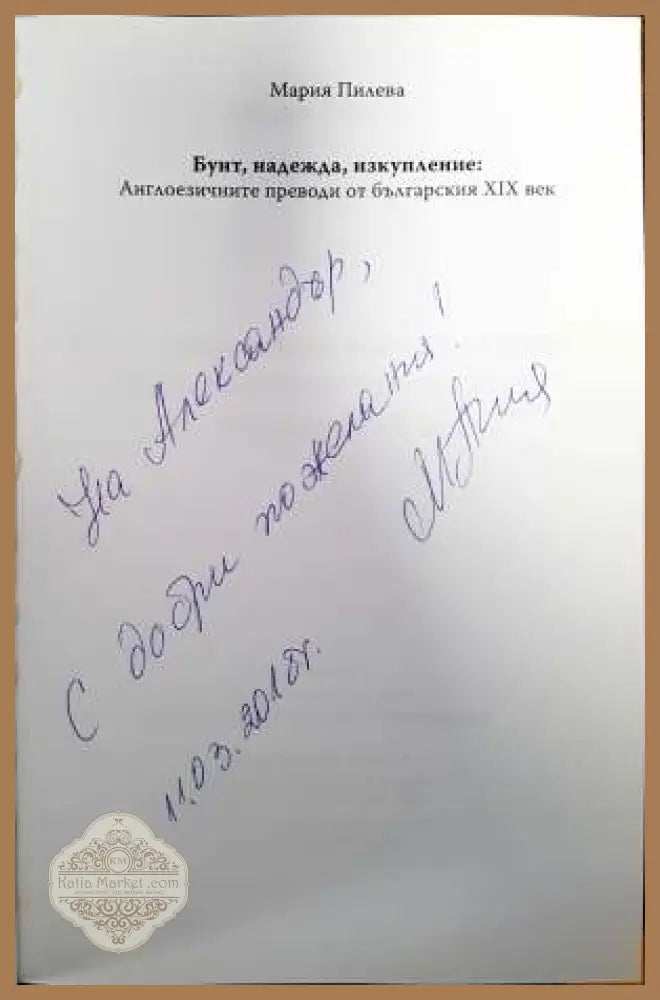 Мария Пилева
Бунт, надежда, изкупление:
Англоезичните преводи от българския XIX век
На Александър,
С добри пожелания!
Мария
11.03.2018г.
KM
Katia Market .com